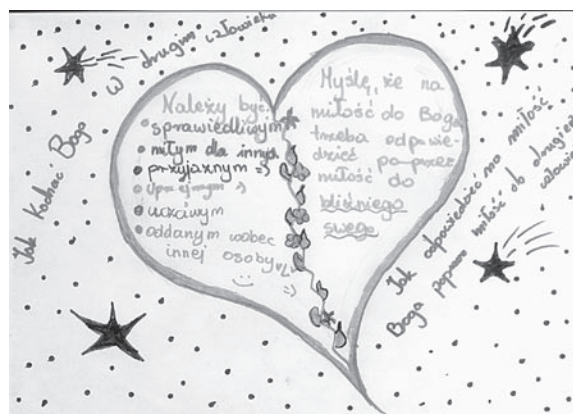 Jak kochać Boga
w drugim człowieku
Należy być:
sprawiedliwym
miłym dla innych
przyjaznym =)
uprzejmym :)
uczciwym
oddanym wobec
innej osoby
=)
Myślę, że na
miłość do Boga
trzeba odpowie-
dzieć poprzez
miłość do
bliźniego
swego
Jak odpowiedzieć na miłość
Boga poprzez miłość do drugiego
człowieka